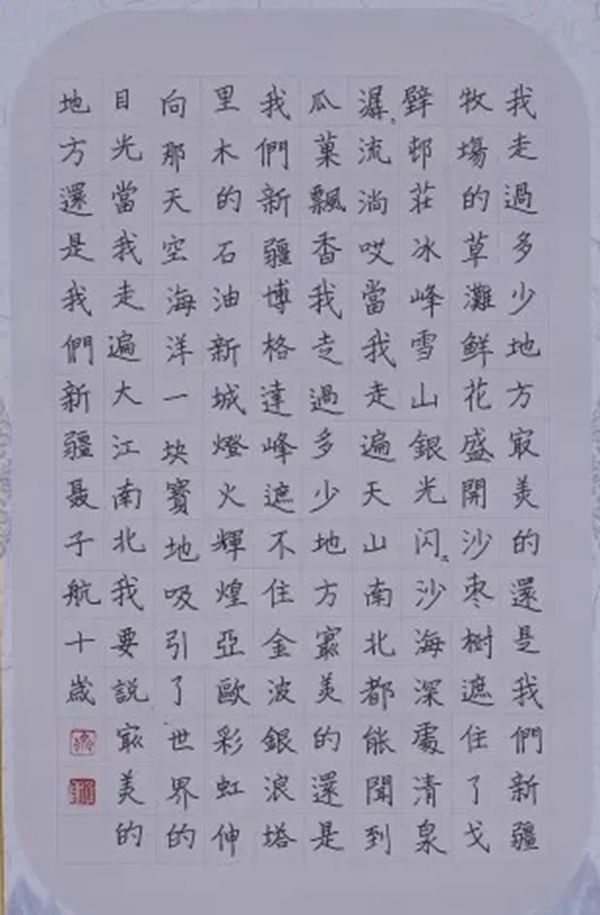 我走過多少地方㝡美的還是我們新疆
牧場的草灘鲜花盛開沙枣樹遮住了戈
壁邨莊冰峰雪山銀光闪〻沙海深處清泉
潺〻流淌哎當我走遍天山南北都能聞到
瓜菓飄香我走過多少地方㝡美的還是
我們新疆博格達峰遮不住金波銀浪塔
里木的石油新城燈火輝煌亞歐彩虹伸
向那天空海洋一块寶地吸引了世界的
目光當我走遍大江南北我要説㝡美的
地方還是我們新疆聂子航十歲